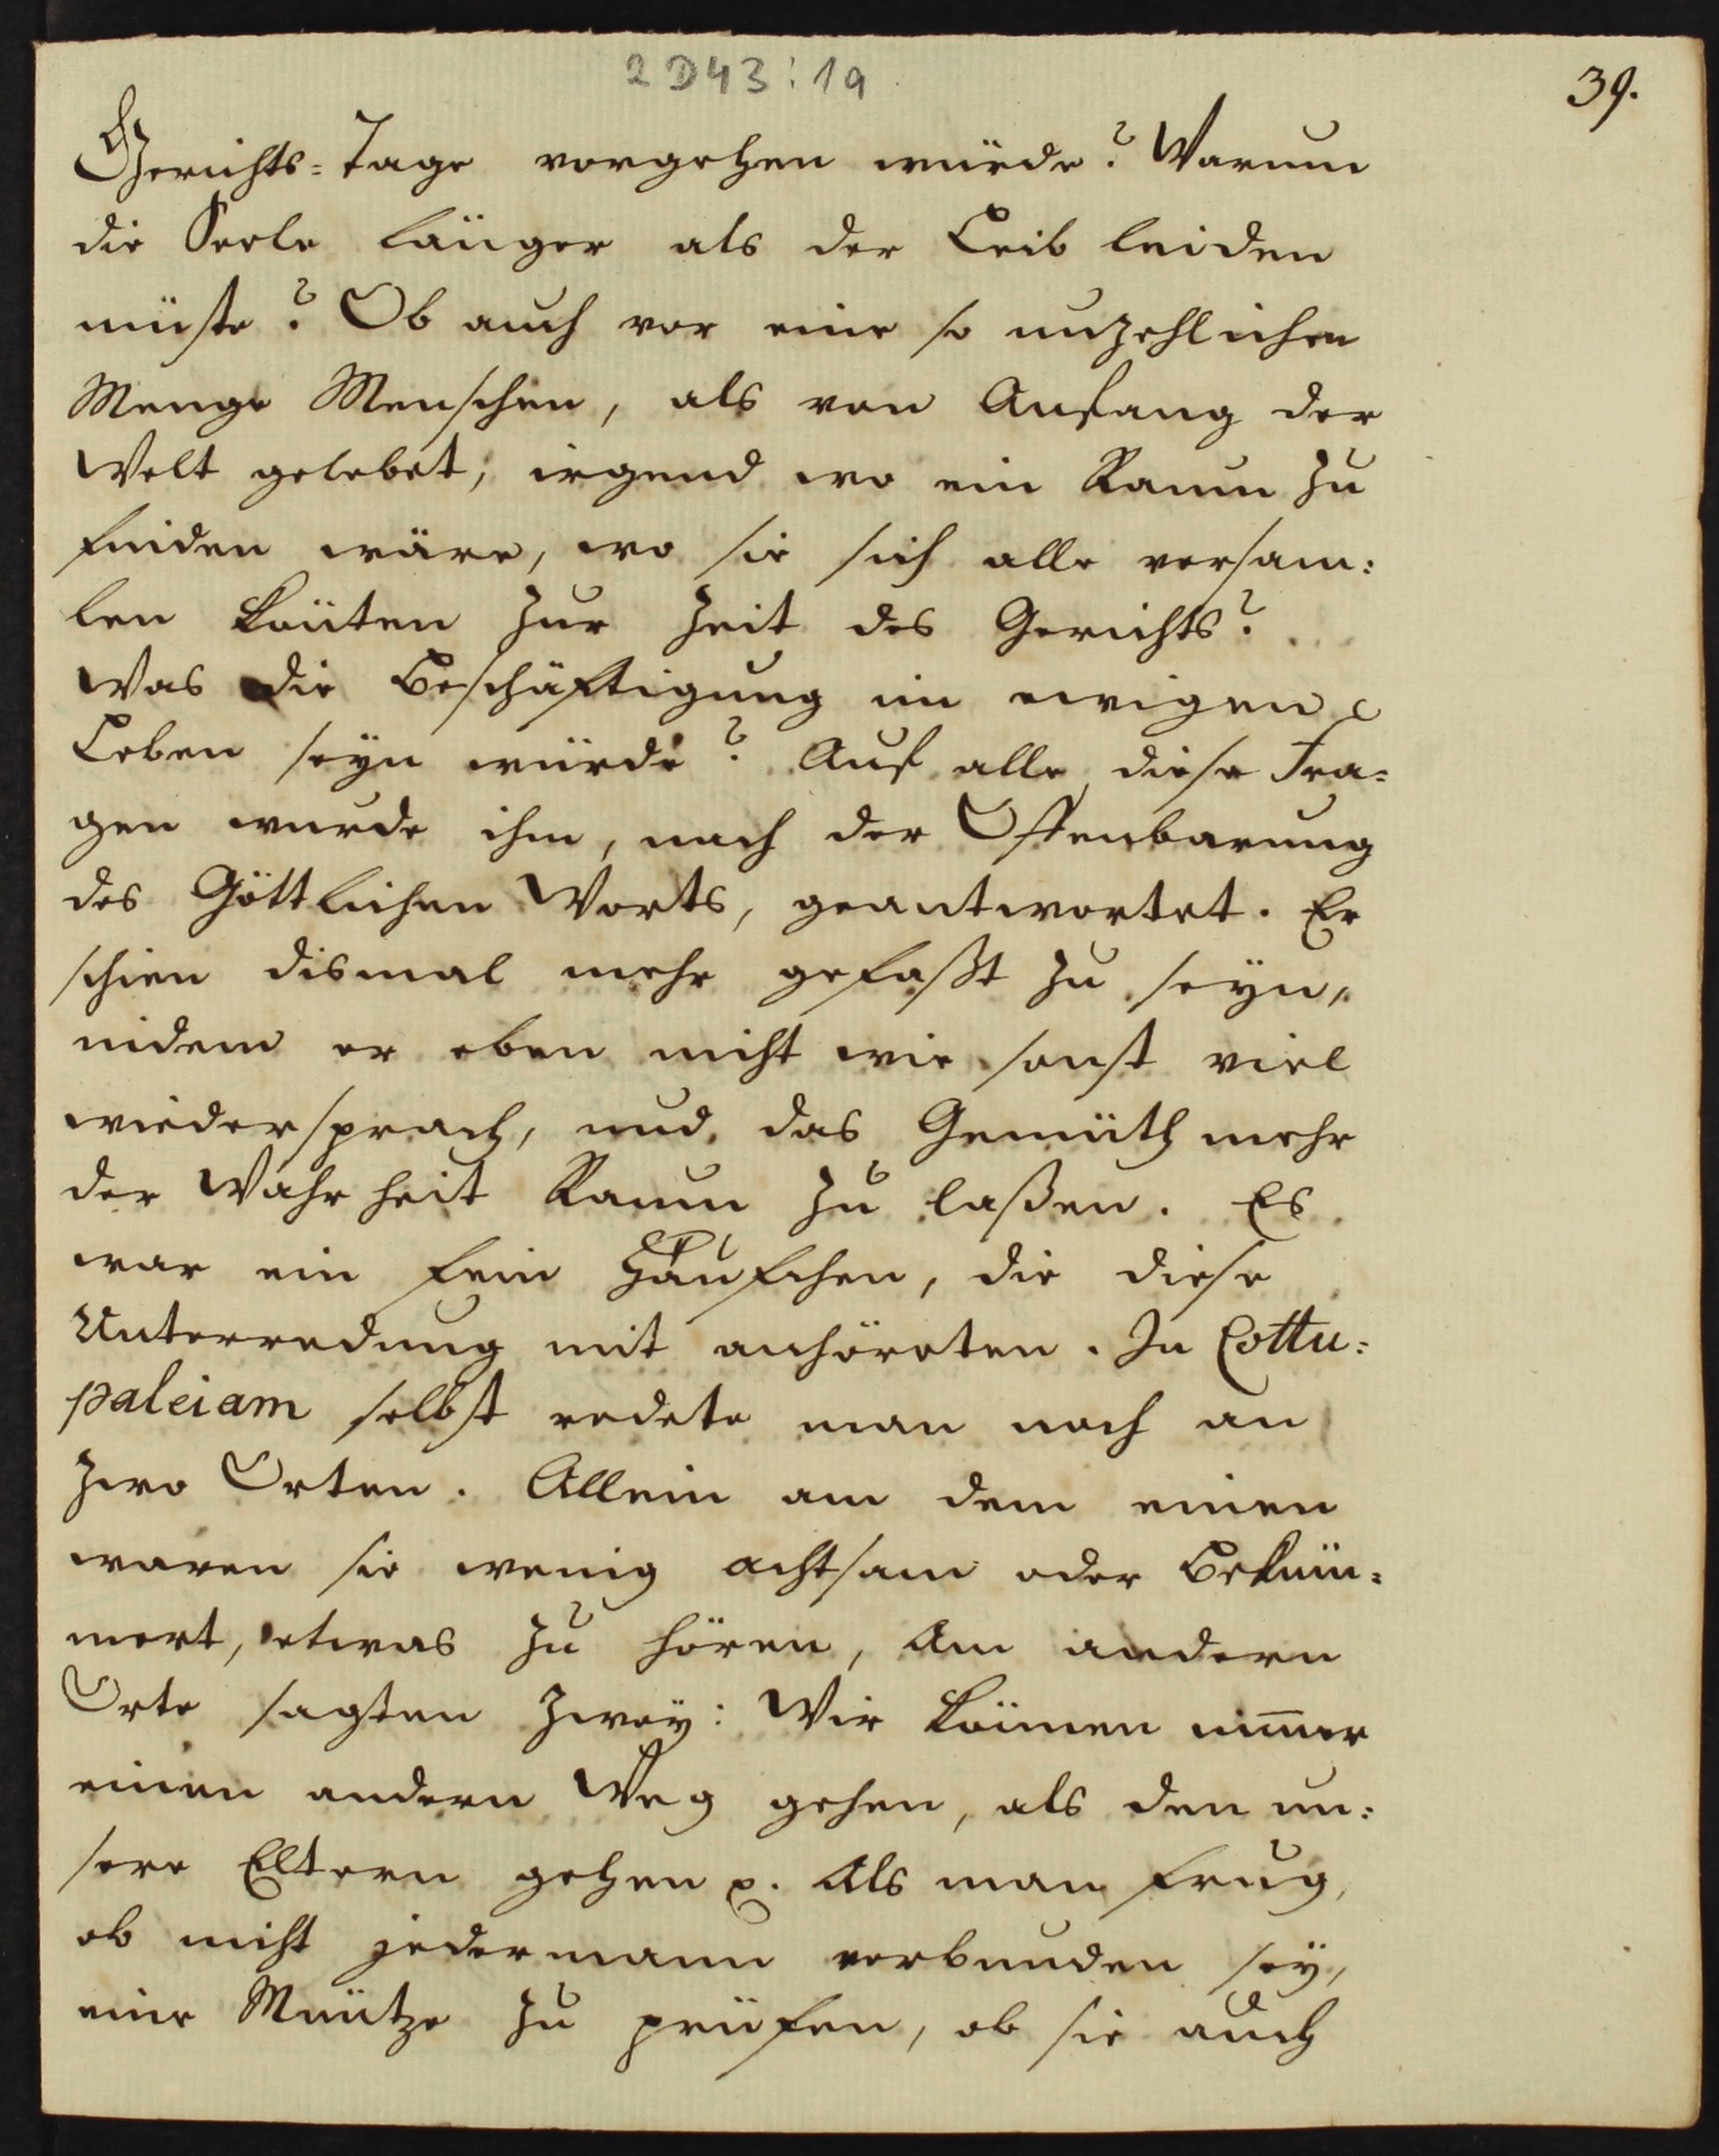 2 D43:19
39.
Gerichts-Tage vorgehen würde? Warum
die Seele länger als der Leib leiden
müste? Ob auch vor eine so unzehlichen
Menge Menschen, als von Anfang der
Welt gelebet, irgend wo ein Raum zu
finden wäre, wo sie sich alle versam:
len könten zur Zeit des Gerichts?
Was die Beschäftigung im ewigen
Leben seyn würde? Auf alle diese Fra-
gen wurde ihm, nach der Offenbarung
des Göttlichen Worts, geantwortet. Er
schien dismal mehr gefaßt zu seyn,
indem er eben nicht wie sonst viel
wiedersprach, und das Gemüth mehr
der Wahrheit Raum zu laßen. Es
war ein fein Häufchen, die diese
Unterredung mit anhöreten. In Cottu:
paleiam selbst redete man noch an
zwo Orten. Allein am dem einen
waren sie wenig achtsam oder beküm-
mert, etwas zu hören, Am andern
Orte sagten zwey: Wir können im̄er
einen andern Weg gehen, als den un:
sere Eltern gehen p. Als man frug,
ob nicht jedermann verbunden sey,
eine Müntze zu prüfen, ob sie auch